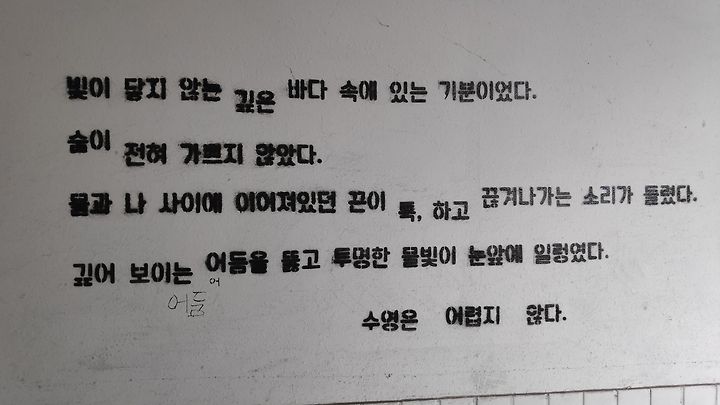 빛이 닿지 않는 깊은 바다 속에 있는 기분이었다.
숨이 전혀 가쁘지 않았다.
물과 나 사이에 이어져있던 끈이 툭, 하고 끊겨나가는 소리가 들렸다.
깊어 보이는 어둠을 뚫고 투명한 물빛이 눈앞에 일렁였다.
어
어둠
수영은 어렵지 않다.